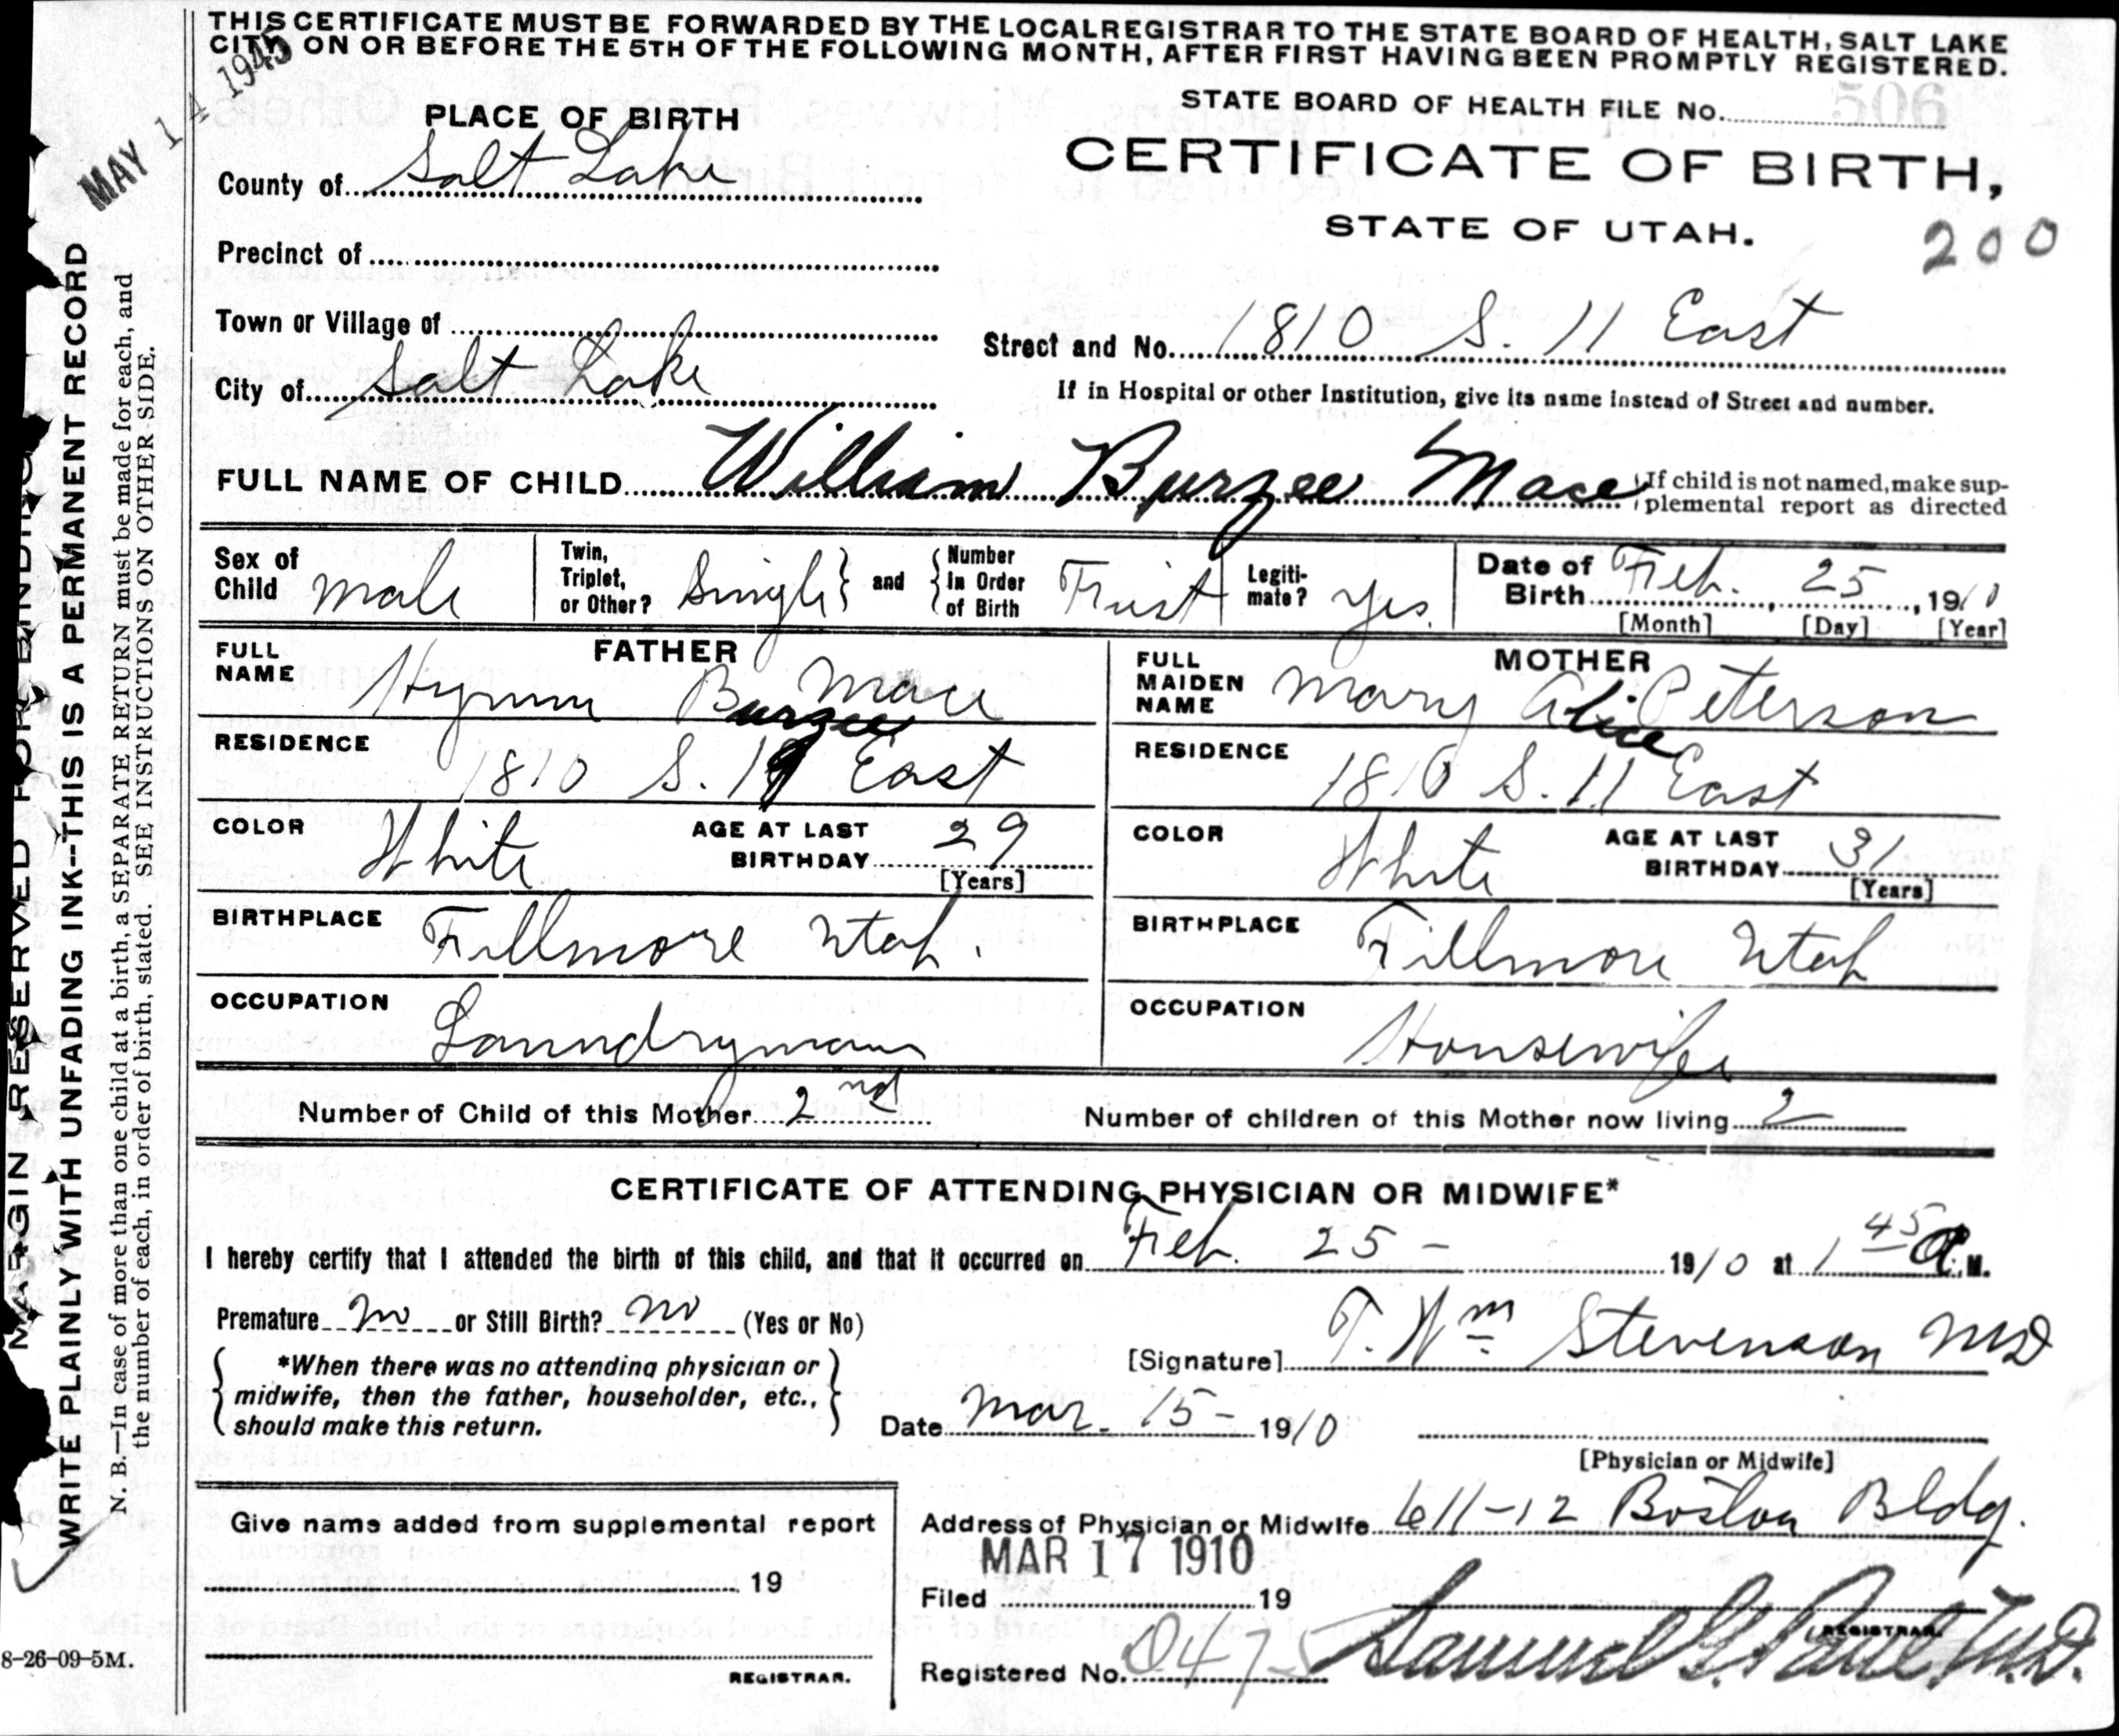 THIS CERTIFICATE MUST BE FORWARDED BY THE LOCAL REGISTRAR TO THE STATE BOARD OF HEALTH, SALT LAKE
CITY, ON OR BEFORE THE 5TH OF THE FOLLOWING MONTH, AFTER FIRST HAVING BEEN PROMPTLY REGISTERED.
MAY 14 1945
STATE BOARD OF HEALTH FILE No. 506
PLACE OF BIRTH
CERTIFICATE OF BIRTH,
STATE OF UTAH.
200
County of Salt Lake
Precinct of
Town or Village of
City of Salt Lake
Street and No. 1810 S. 11 East
If in Hospital or other Institution, give its name instead of Street and number.
FULL NAME OF CHILD William Burzee Mace
If child is not named, make sup-
plemental report as directed
Sex of Child Male
Twin, Triplet, or Other? Single
and Number In Order of Birth First
Legiti-mate? Yes.
Date of Birth Feb. 25, 1910
[Month] [Day] [Year]
FATHER
FULL NAME Hyrum Burzee Mace
RESIDENCE 1810 S. 11 East
COLOR White
AGE AT LAST BIRTHDAY 29
[Years]
BIRTHPLACE Fillmore Utah.
OCCUPATION Laundryman
MOTHER
FULL MAIDEN NAME Mary Alice Peterson
RESIDENCE 1810 S. 11 East
COLOR White
AGE AT LAST BIRTHDAY 31
[Years]
BIRTHPLACE Fillmore Utah
OCCUPATION Housewife
Number of Child of this Mother 2nd
Number of children of this Mother now living 2
CERTIFICATE OF ATTENDING PHYSICIAN OR MIDWIFE*
I hereby certify that I attended the birth of this child, and that it occurred on Feb. 25 - 1910 at 1 45 a. M.
Premature no or Still Birth? no (Yes or No)
*When there was no attending physician or
midwife, then the father, householder, etc.,
should make this return.
[Signature] T. Wm Stevenson MD
Date Mar. 15 - 1910
[Physician or Midwife]
Give name added from supplemental report
19
REGISTRAR.
Address of Physician or Midwife 611-12 Boston Bldg.
MAR 17 1910
Filed 19
REGISTRAR.
Registered No. 0475
Samuel G. Paul M.D.
MARGIN RESERVED FOR BINDING
WRITE PLAINLY WITH UNFADING INK--THIS IS A PERMANENT RECORD
N. B.—In case of more than one child at a birth, a SEPARATE RETURN must be made for each, and
the number of each, in order of birth, stated. SEE INSTRUCTIONS ON OTHER SIDE.
8-26-09-5M.